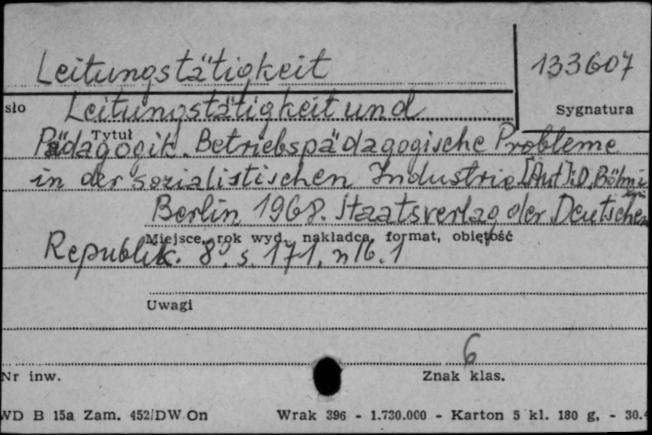 Leitungstätigkeit
133607
sło Leitungstätigkeit und
Sygnatura
Tytuł
Pädagogik. Betriebspädagogische Probleme
in der sozialistischen Industrie [Aut]: D. Böhmi
Berlin 1968. Staatsverlag der Deutschen
Miejsce, rok wyd., nakładca, format, obiętość
Republik. 8°, s. 171, nlb. 1
Uwagi
6
Nr inw.
Znak klas.
WD B 15a Zam. 452/DW On Wrak 396 - 1.730.000 - Karton 5 kl. 180 g, - 30.